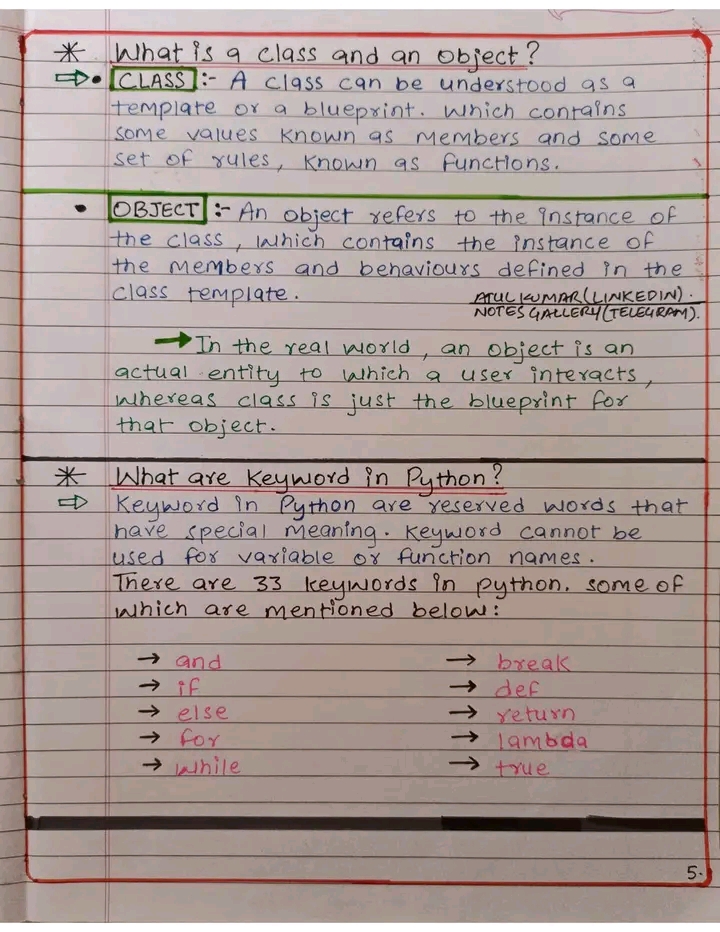 * What is a class and an object?
⇨ • CLASS :- A class can be understood as a
template or a blueprint. which contains
some values known as members and some
set of rules, known as functions.
• OBJECT :- An object refers to the instance of
the class, which contains the instance of
the members and behaviours defined in the
class template.
ATUL KUMAR (LINKEDIN).
NOTES GALLERY (TELEGRAM).
→ In the real world, an object is an
actual entity to which a user interacts,
whereas class is just the blueprint for
that object.
* What are Keyword in Python?
⇨ Keyword in Python are reserved words that
have special meaning. Keyword cannot be
used for variable or function names.
There are 33 keywords in python. some of
which are mentioned below:
→ and → break
→ if → def
→ else → return
→ for → lambda
→ while → true
5.